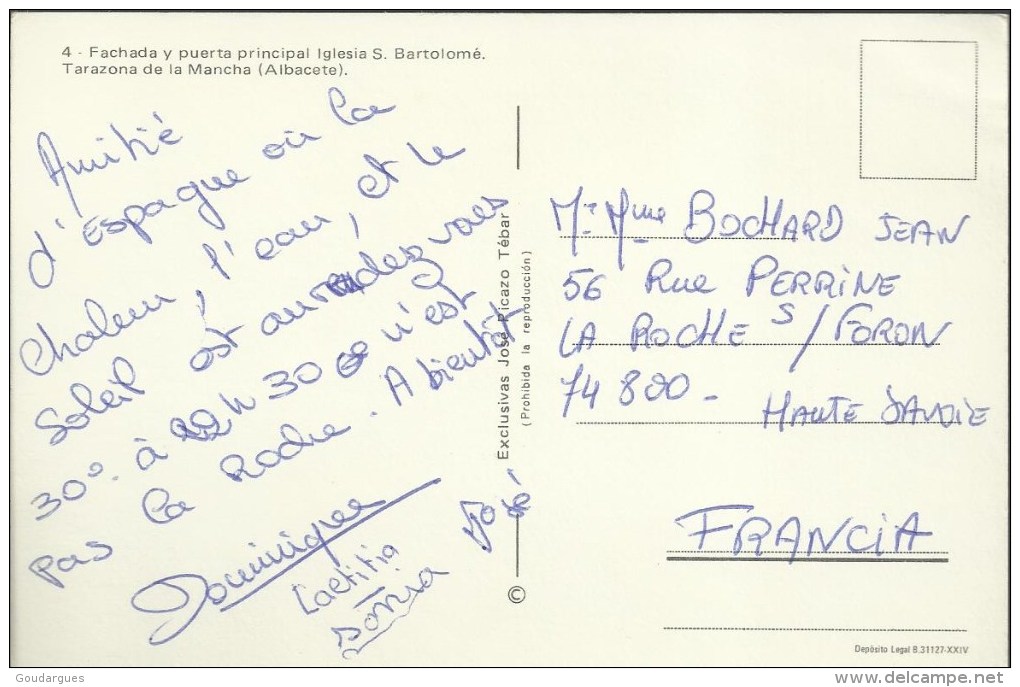 4 - Fachada y puerta principal Iglesia S. Bartolomé.
Tarazona de la Mancha (Albacete).
Amitié
d'Espagne où la
Chaleur, l'eau, et le
Soleil est au rendez vous
30° à 22 h 30 n'est
pas la Roche. A bientôt
Dominique
Laetitia
Sonia
José
Exclusivas José Picazo Tébar
(Prohibida la reproducción)
©
Mr Mme BOCHARD JEAN
56 Rue PERRINE
LA ROCHE S/FORON
74 800 -
HAUTE SAVOIE
FRANCIA
Depósito Legal B.31127-XXIV
Goudargues
delcampe.net